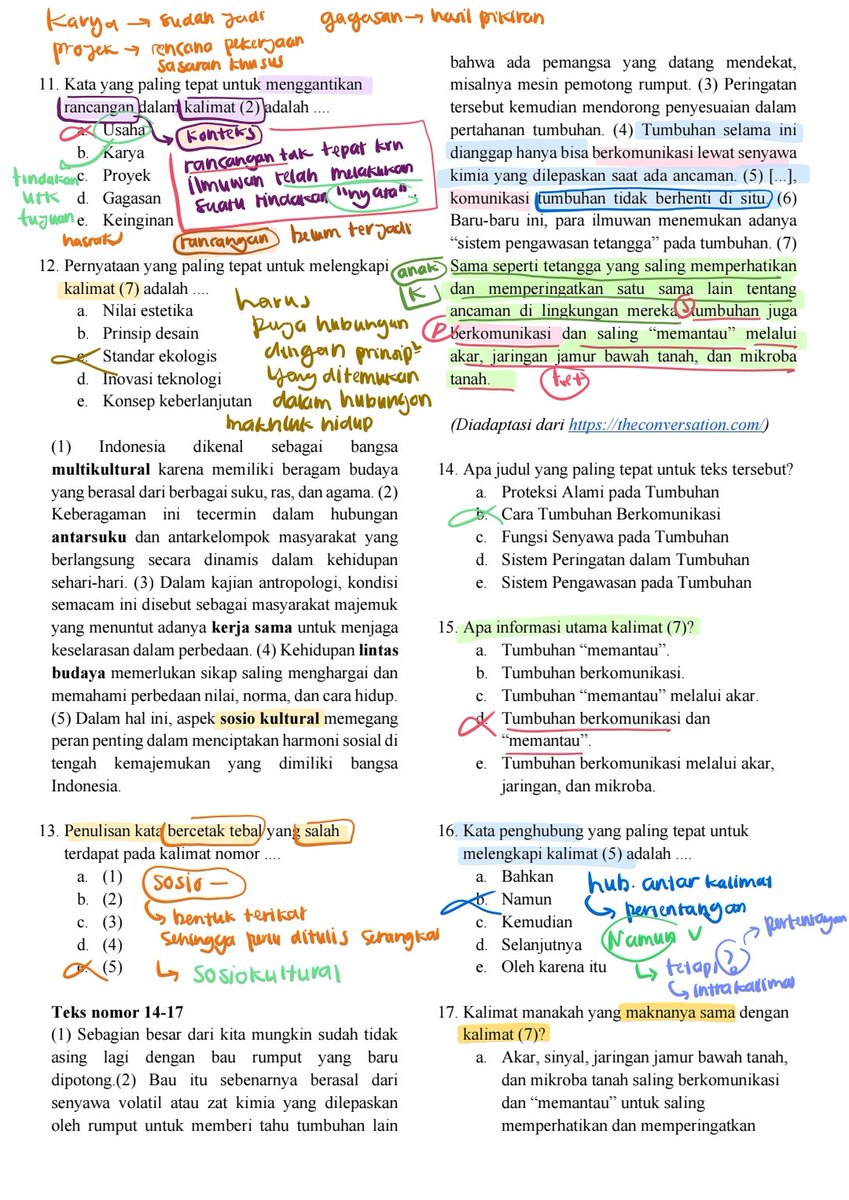 Karya → sudah jadi
gagasan → hasil pikiran
proyek → rencana pekerjaan
sasaran khusus
11. Kata yang paling tepat untuk menggantikan
rancangan dalam kalimat (2) adalah ....
a. Usaha
b. Karya
c. Proyek
d. Gagasan
e. Keinginan
konteks
rancangan tak tepat krn
ilmuwan telah melakukan
suatu tindakan "nyata"
tindakan
utk
tujuan
hasrat
rancangan belum terjadi
12. Pernyataan yang paling tepat untuk melengkapi
kalimat (7) adalah ....
a. Nilai estetika
b. Prinsip desain
c. Standar ekologis
d. Inovasi teknologi
e. Konsep keberlanjutan
harus
puya hubungan
dengan prinsip²
yang ditemukan
dalam hubungan
makhluk hidup
(1) Indonesia dikenal sebagai bangsa
multikultural karena memiliki beragam budaya
yang berasal dari berbagai suku, ras, dan agama. (2)
Keberagaman ini tecermin dalam hubungan
antarsuku dan antarkelompok masyarakat yang
berlangsung secara dinamis dalam kehidupan
sehari-hari. (3) Dalam kajian antropologi, kondisi
semacam ini disebut sebagai masyarakat majemuk
yang menuntut adanya kerja sama untuk menjaga
keselarasan dalam perbedaan. (4) Kehidupan lintas
budaya memerlukan sikap saling menghargai dan
memahami perbedaan nilai, norma, dan cara hidup.
(5) Dalam hal ini, aspek sosio kultural memegang
peran penting dalam menciptakan harmoni sosial di
tengah kemajemukan yang dimiliki bangsa
Indonesia.
13. Penulisan kata bercetak tebal yang salah
terdapat pada kalimat nomor ....
a. (1)
b. (2)
c. (3)
d. (4)
e. (5)
sosio –
↳ bentuk terikat
sehingga perlu ditulis serangkai
↳ sosiokultural
Teks nomor 14-17
(1) Sebagian besar dari kita mungkin sudah tidak
asing lagi dengan bau rumput yang baru
dipotong.(2) Bau itu sebenarnya berasal dari
senyawa volatil atau zat kimia yang dilepaskan
oleh rumput untuk memberi tahu tumbuhan lain
bahwa ada pemangsa yang datang mendekat,
misalnya mesin pemotong rumput. (3) Peringatan
tersebut kemudian mendorong penyesuaian dalam
pertahanan tumbuhan. (4) Tumbuhan selama ini
dianggap hanya bisa berkomunikasi lewat senyawa
kimia yang dilepaskan saat ada ancaman. (5) [...],
komunikasi tumbuhan tidak berhenti di situ. (6)
Baru-baru ini, para ilmuwan menemukan adanya
“sistem pengawasan tetangga” pada tumbuhan. (7)
anak K
Sama seperti tetangga yang saling memperhatikan
dan memperingatkan satu sama lain tentang
ancaman di lingkungan mereka, tumbuhan juga
S
P
berkomunikasi dan saling “memantau” melalui
akar, jaringan jamur bawah tanah, dan mikroba
tanah.
ket
(Diadaptasi dari https://theconversation.com/)
14. Apa judul yang paling tepat untuk teks tersebut?
a. Proteksi Alami pada Tumbuhan
b. Cara Tumbuhan Berkomunikasi
c. Fungsi Senyawa pada Tumbuhan
d. Sistem Peringatan dalam Tumbuhan
e. Sistem Pengawasan pada Tumbuhan
15. Apa informasi utama kalimat (7)?
a. Tumbuhan “memantau”.
b. Tumbuhan berkomunikasi.
c. Tumbuhan “memantau” melalui akar.
d. Tumbuhan berkomunikasi dan
“memantau”.
e. Tumbuhan berkomunikasi melalui akar,
jaringan, dan mikroba.
16. Kata penghubung yang paling tepat untuk
melengkapi kalimat (5) adalah ....
a. Bahkan
b. Namun
c. Kemudian
d. Selanjutnya
e. Oleh karena itu
hub. antar kalimat
↳ pertentangan
Namun ✓
↳ tetapi ? → pertentangan
↳ intrakalimat
17. Kalimat manakah yang maknanya sama dengan
kalimat (7)?
a. Akar, sinyal, jaringan jamur bawah tanah,
dan mikroba tanah saling berkomunikasi
dan “memantau” untuk saling
memperhatikan dan memperingatkan